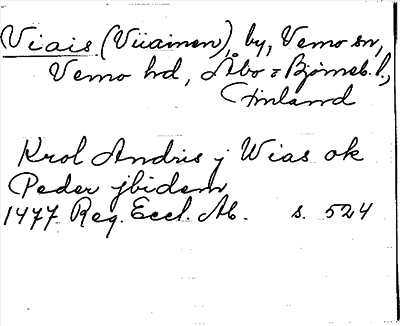 Viais (Viiainen), by, Vemo sn,
Vemo hd, Åbo-Björneb. l.,
Finland
Krol Andris j Wias ok
Peder jbidem
1477 Reg. Eccl. Ab. s. 524